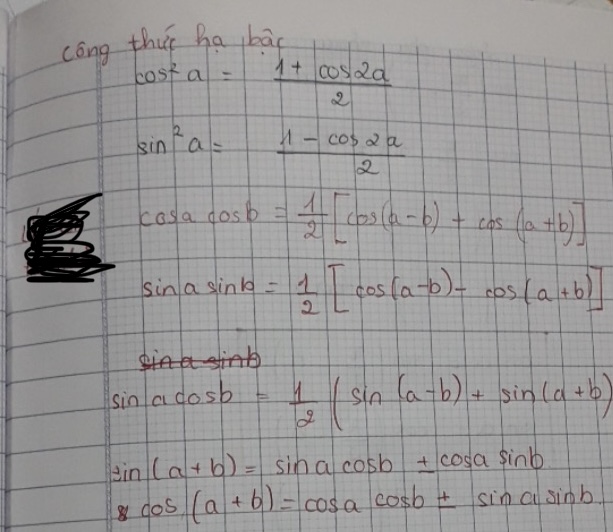 công thức hạ bậc
cos² a = (1 + cos 2a) / 2
sin² a = (1 - cos 2a) / 2
cosa cosb = 1/2 [cos(a-b) + cos (a+b)]
sin a sin b = 1/2 [cos(a-b) - cos(a+b)]
sin a sinb
sin a cosb = 1/2 (sin (a-b) + sin(a+b)
sin (a+b) = sin a cosb ± cosa sinb
cos (a+b) = cosa cosb ± sin a sinb